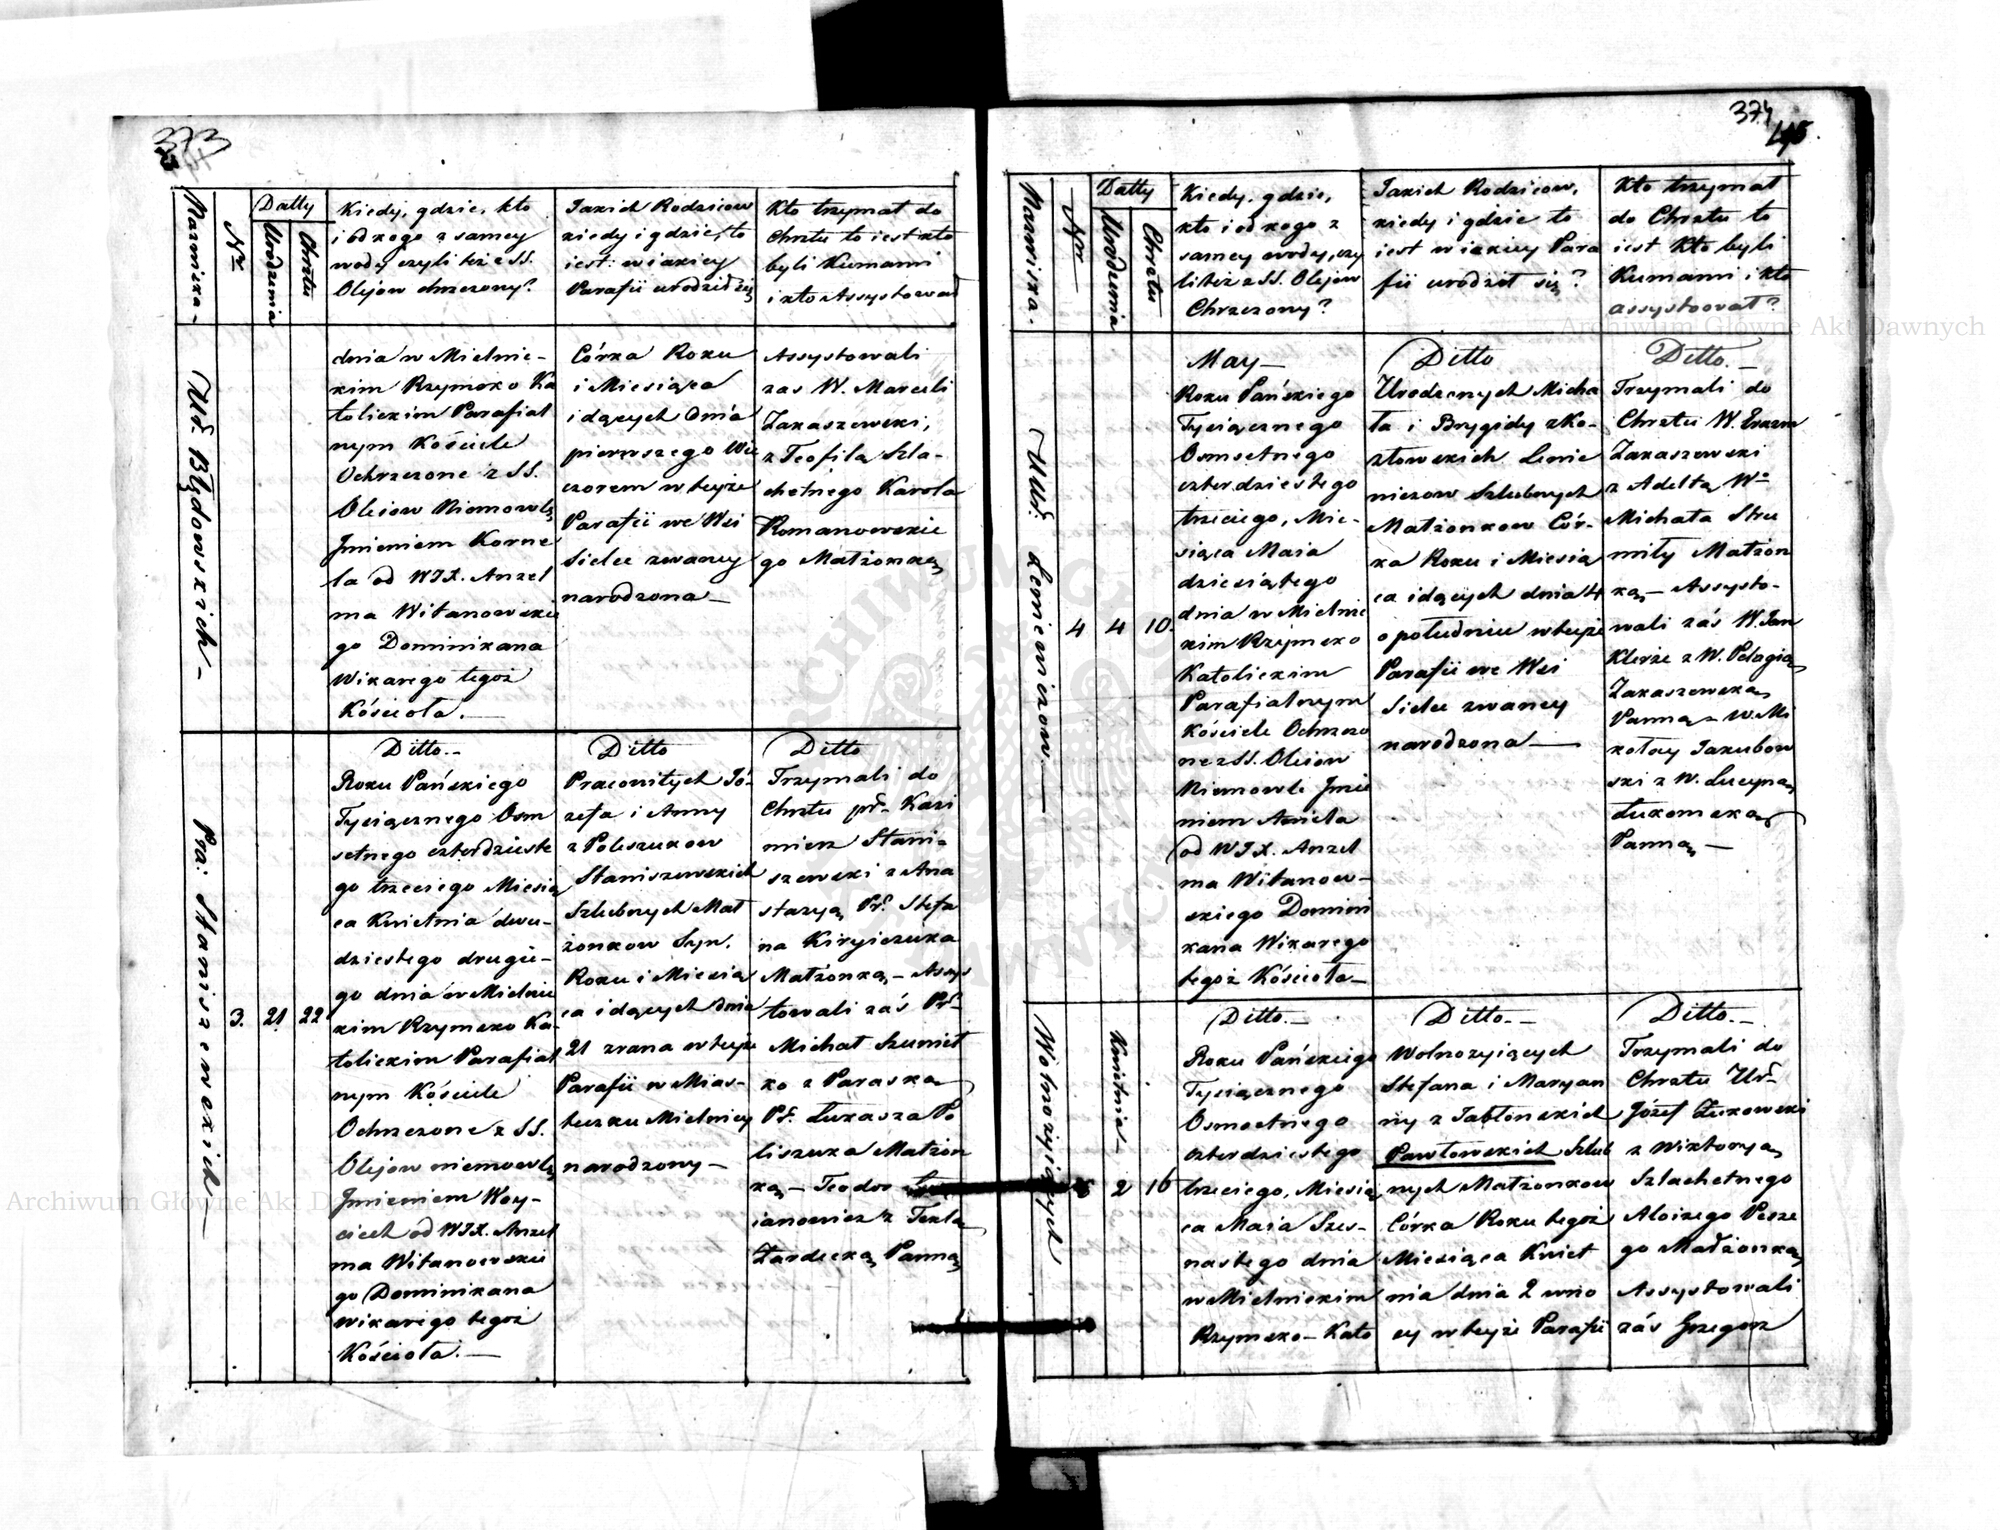 373
Nazwiska.
Nr
Datty
Urodzenia
Chrztu
Kiedy, gdzie, kto
i od kogo z samey
wody czyli też z SS.
Olejow chrzczony?
Jakich Rodzicow
kiedy i gdzie, to
iest: w iakiey
Parafii urodził się
Kto trzymał do
Chrztu to iest kto
byli Kumami
i kto Assystował
Błędowskich
dnia w Mielnic-
kim Rzymsko Ka
tolickim Parafial
nym Kościele
Ochrzczone z SS.
Olejow Niemowlę
Jmieniem Korne
la od WJX. Anzel
ma Witanowskie
go Dominikana
Wikarego tegoż
Kościoła.
Córka Roku
i Miesiąca
idących dnia
pierwszego Wie
czorem w teyże
Parafii we Wsi
Sielce zwaney
narodzona
Assystowali
zas W. Marceli
Zakaszewski,
z Teofilą Szla-
chetnego Karola
Romanowskie
go Małżonką
Pra: Staniszewskich
3. 21 22
Ditto.
Roku Pańskiego
Tysiącznego Osm
setnego czterdzieste
go trzeciego Miesią
ca Kwietnia dwu-
dziestego drugie-
go dnia w Mielnic
kim Rzymsko Ka-
tolickim Parafial
nym Kościele
Ochrzczone z SS.
Olejow niemowlę
Jmieniem Woy-
ciech od WJX. Anzel
ma Witanowskie
go Dominikana
wikarego tegoż
Kościoła.
Ditto
Pracowitych Jó-
zefa i Anny
z Poleszukow
Staniszewskich
Szlubnych Mał
żonkow Syn.
Roku i Miesią
ca idących dnia
21 zrana w teyże
Parafii w Mias-
teczku Mielnicy
narodzony
Ditto
Trzymali do
Chrztu pr. Kazi
mierz Stani-
szewski z Ana
stazyą Pr. Stefa
na Kiryiczuka
Małżonką - Assys
towali zaś Pr.
Michał Szumit
ko z Paraską
Pr. Łukasza Po
liszuka Małżon
ką - Teodor
ianowicz z Teklą
Zardecką Panną
374
45
Nazwiska.
Nr
Datty
Urodzenia
Chrztu
Kiedy, gdzie,
kto i od kogo z
samey wody, czy
li też z SS. Olejow
Chrzczony?
Jakich Rodzicow,
kiedy i gdzie to
iest w iakiey Para
fii urodził się?
Kto trzymał
do Chrztu to
iest Kto byli
Kumami i kto
assystował?
Leniewiczow
4 4 10.
May
Roku Pańskiego
Tysiącznego
Osmsetnego
czterdziestego
trzeciego, Mie-
siąca Maia
dziesiątego
dnia w Mielnic
kim Rzymsko
Katolickim
Parafialnym
Kościele Ochrzczo
ne z SS. Olejow
Niemowle Jmie
niem Aniela
od WJX. Anzel
ma Witanow-
skiego Domini
kana Wikarego
tegoż Kościoła
Ditto
Urodzonych Micha
ła i Brygidy z Ko-
złowskich Lenie
wiczow Szlubnych
Małżonkow Cór-
ka Roku i Miesią
ca idących dnia 4
o południu w teyże
Parafii we Wsi
Sielce zwaney
narodzona
Ditto.
Trzymali do
Chrztu W. Erazm
Zakaszewski
z Adellą W.
Michała Stru
miły Małżon
ką - Assysto-
wali zaś W. Jan
Klerże z W. Pelagią
Zakaszewską
Panną - W. Mi
kołay Jakubow
ski z W. Lucyną
Łukomską
Panną
Wolnożyiących
Kwietnia
2 16
Ditto.
Roku Pańskiego
Tysiącznego
Osmsetnego
czterdziestego
trzeciego, Miesią
ca Maia Szes-
nastego dnia
w Mielnickim
Rzymsko-Kato
Ditto.
Wolnożyiących
Stefana i Maryan
ny z Jabłonskich
Pawłowskich Szlub
nych Małżonkow
Córka Roku tegoż
Miesiąca Kwiet
nia dnia 2 w no
cy w teyże Parafii
Ditto.
Trzymali do
Chrztu Ur.
Józef Żukowski
z Wiktoryą
Szlachetnego
Aloizego Pesze
go Madżonką
Assystowali
zaś Grzegorz
Archiwum Główne Akt Dawnych
Archiwum Główne Akt D